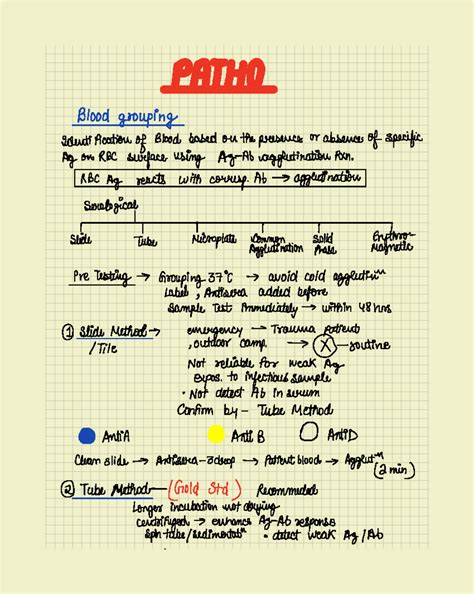 PATHO
Blood grouping
Identification of Blood based on the presence or absence of specific
Ag on RBC surface using Ag-Ab agglutination Rxn.
RBC Ag reacts with corresp. Ab → agglutination
Serological
Slide Tube Microplate Common Agglutination Solid Phase Erythro-magnetic
Pre Testing → Grouping 37°C → avoid cold agglutiⁿ
Label, Antisera added before
Sample Test Immediately → within 48 hrs
① Slide Method → emergency → Trauma patient
/Tile , outdoor camp. → Ⓧ → routine
Not reliable for weak Ag
Expos. to infectious sample
• Not detect Ab in serum
Confirm by - Tube Method
AntiA Anti B AntiD
Clean slide → Antisera-1drop → Patient blood → Agglutⁿ (2 min)
② Tube Method - (Gold Std) Recommended
Longer incubation not drying
Centrifuged → enhance Ag-Ab response
tube/sedimentatⁿ • detect weak Ag/Ab